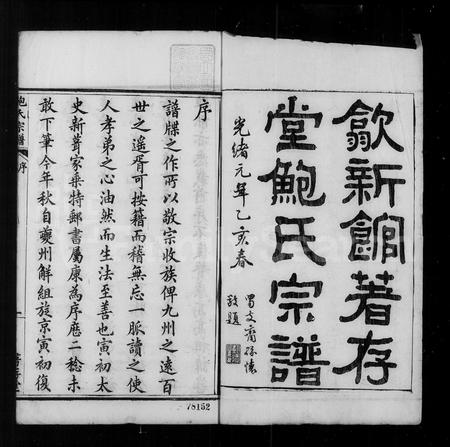 歙新館著存
堂鮑氏宗譜
光緒元年乙亥春
敬題
序
譜牒之作所以敬宗收族俾九州之遠百
世之遙胥可按籍而稽無忘一脈讀之使
人孝弟之心油然而生法至善也寅初太
史新葺家乘特郵書屬康為序應二稔未
敢下筆今年秋自夔州解組旋京寅初復
鮑氏宗譜
序
一
78152